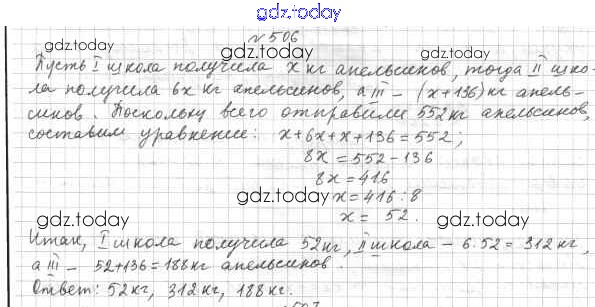 gdz.today
№506
gdz.today gdz.today gdz.today
Пусть I школа получила x кг апельсинов, тогда II шко-
ла получила 6x кг апельсинов, а III – (x+136) кг апель-
синов. Поскольку всего отправили 552 кг апельсинов,
составим уравнение: x+6x+x+136=552;
8x=552-136
8x=416
gdz.today
x=416:8
x= 52.
gdz.today gdz.today
Итак, I школа получила 52 кг, II школа – 6·52=312 кг,
а III – 52+136=188 кг апельсинов.
Ответ: 52 кг, 312 кг, 188 кг.